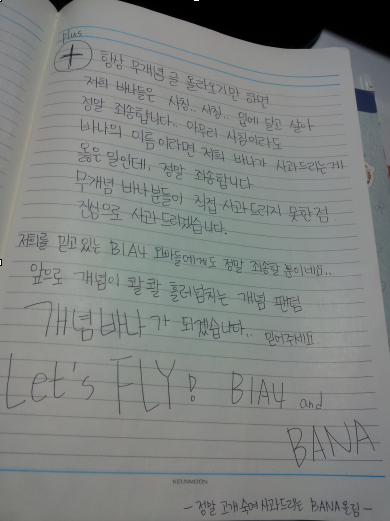 plus
+ 항상 무개념 글 올라오기만 하면
저희 바나들은 사칭.. 사칭.. 입에 달고 살아
정말 죄송합니다.. 아무리 사칭이라도
바나의 이름이라면 저희 바나가 사과드리는게
옳은 일인데, 정말 죄송합니다
무개념 바나분들이 직접 사과드리지 못한점
진심으로 사과드리겠습니다.
저희를 믿고있는 B1A4 오빠들에게도 정말 죄송할 뿐이네요..
앞으로 개념이 콸콸 흘러넘치는 개념 팬덤
개념바나가 되겠습니다.. 믿어주세요
Let's FLY! B1A4 and
BANA
KEUNMOON
- 정말 고개숙여 사과드리는 BANA올림 -